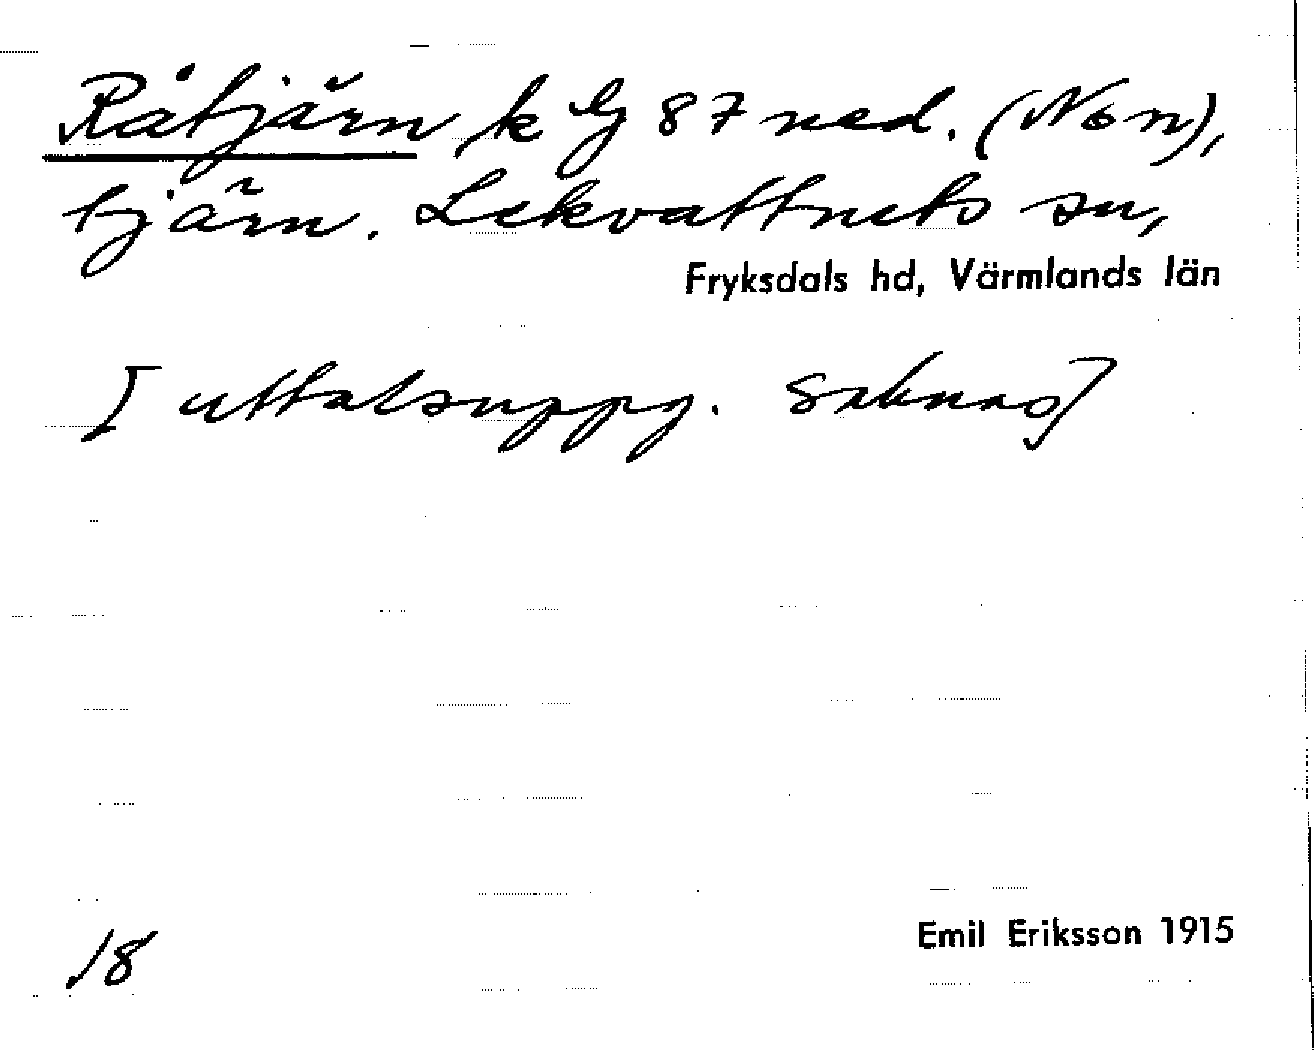 Råtjärn, k bg 87 ned. (Non),
tjärn. Lekvattnets sn,
Fryksdals hd, Värmlands län
[uttalsuppg. saknas]
18
Emil Eriksson 1915